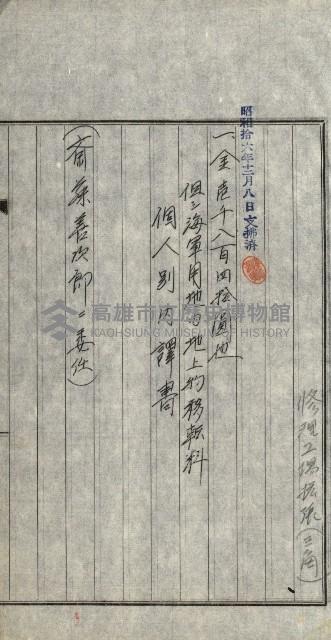 修理工場拡張(三角)
昭和拾六年十二月八日支拂済
一、金壱千八百四拾圓也
但シ海軍用地内地上物移転料
個人別内譯書
(斎藤善次郎ニ委任)
高雄市立歷史博物館
KAOHSIUNG MUSEUM OF HISTORY